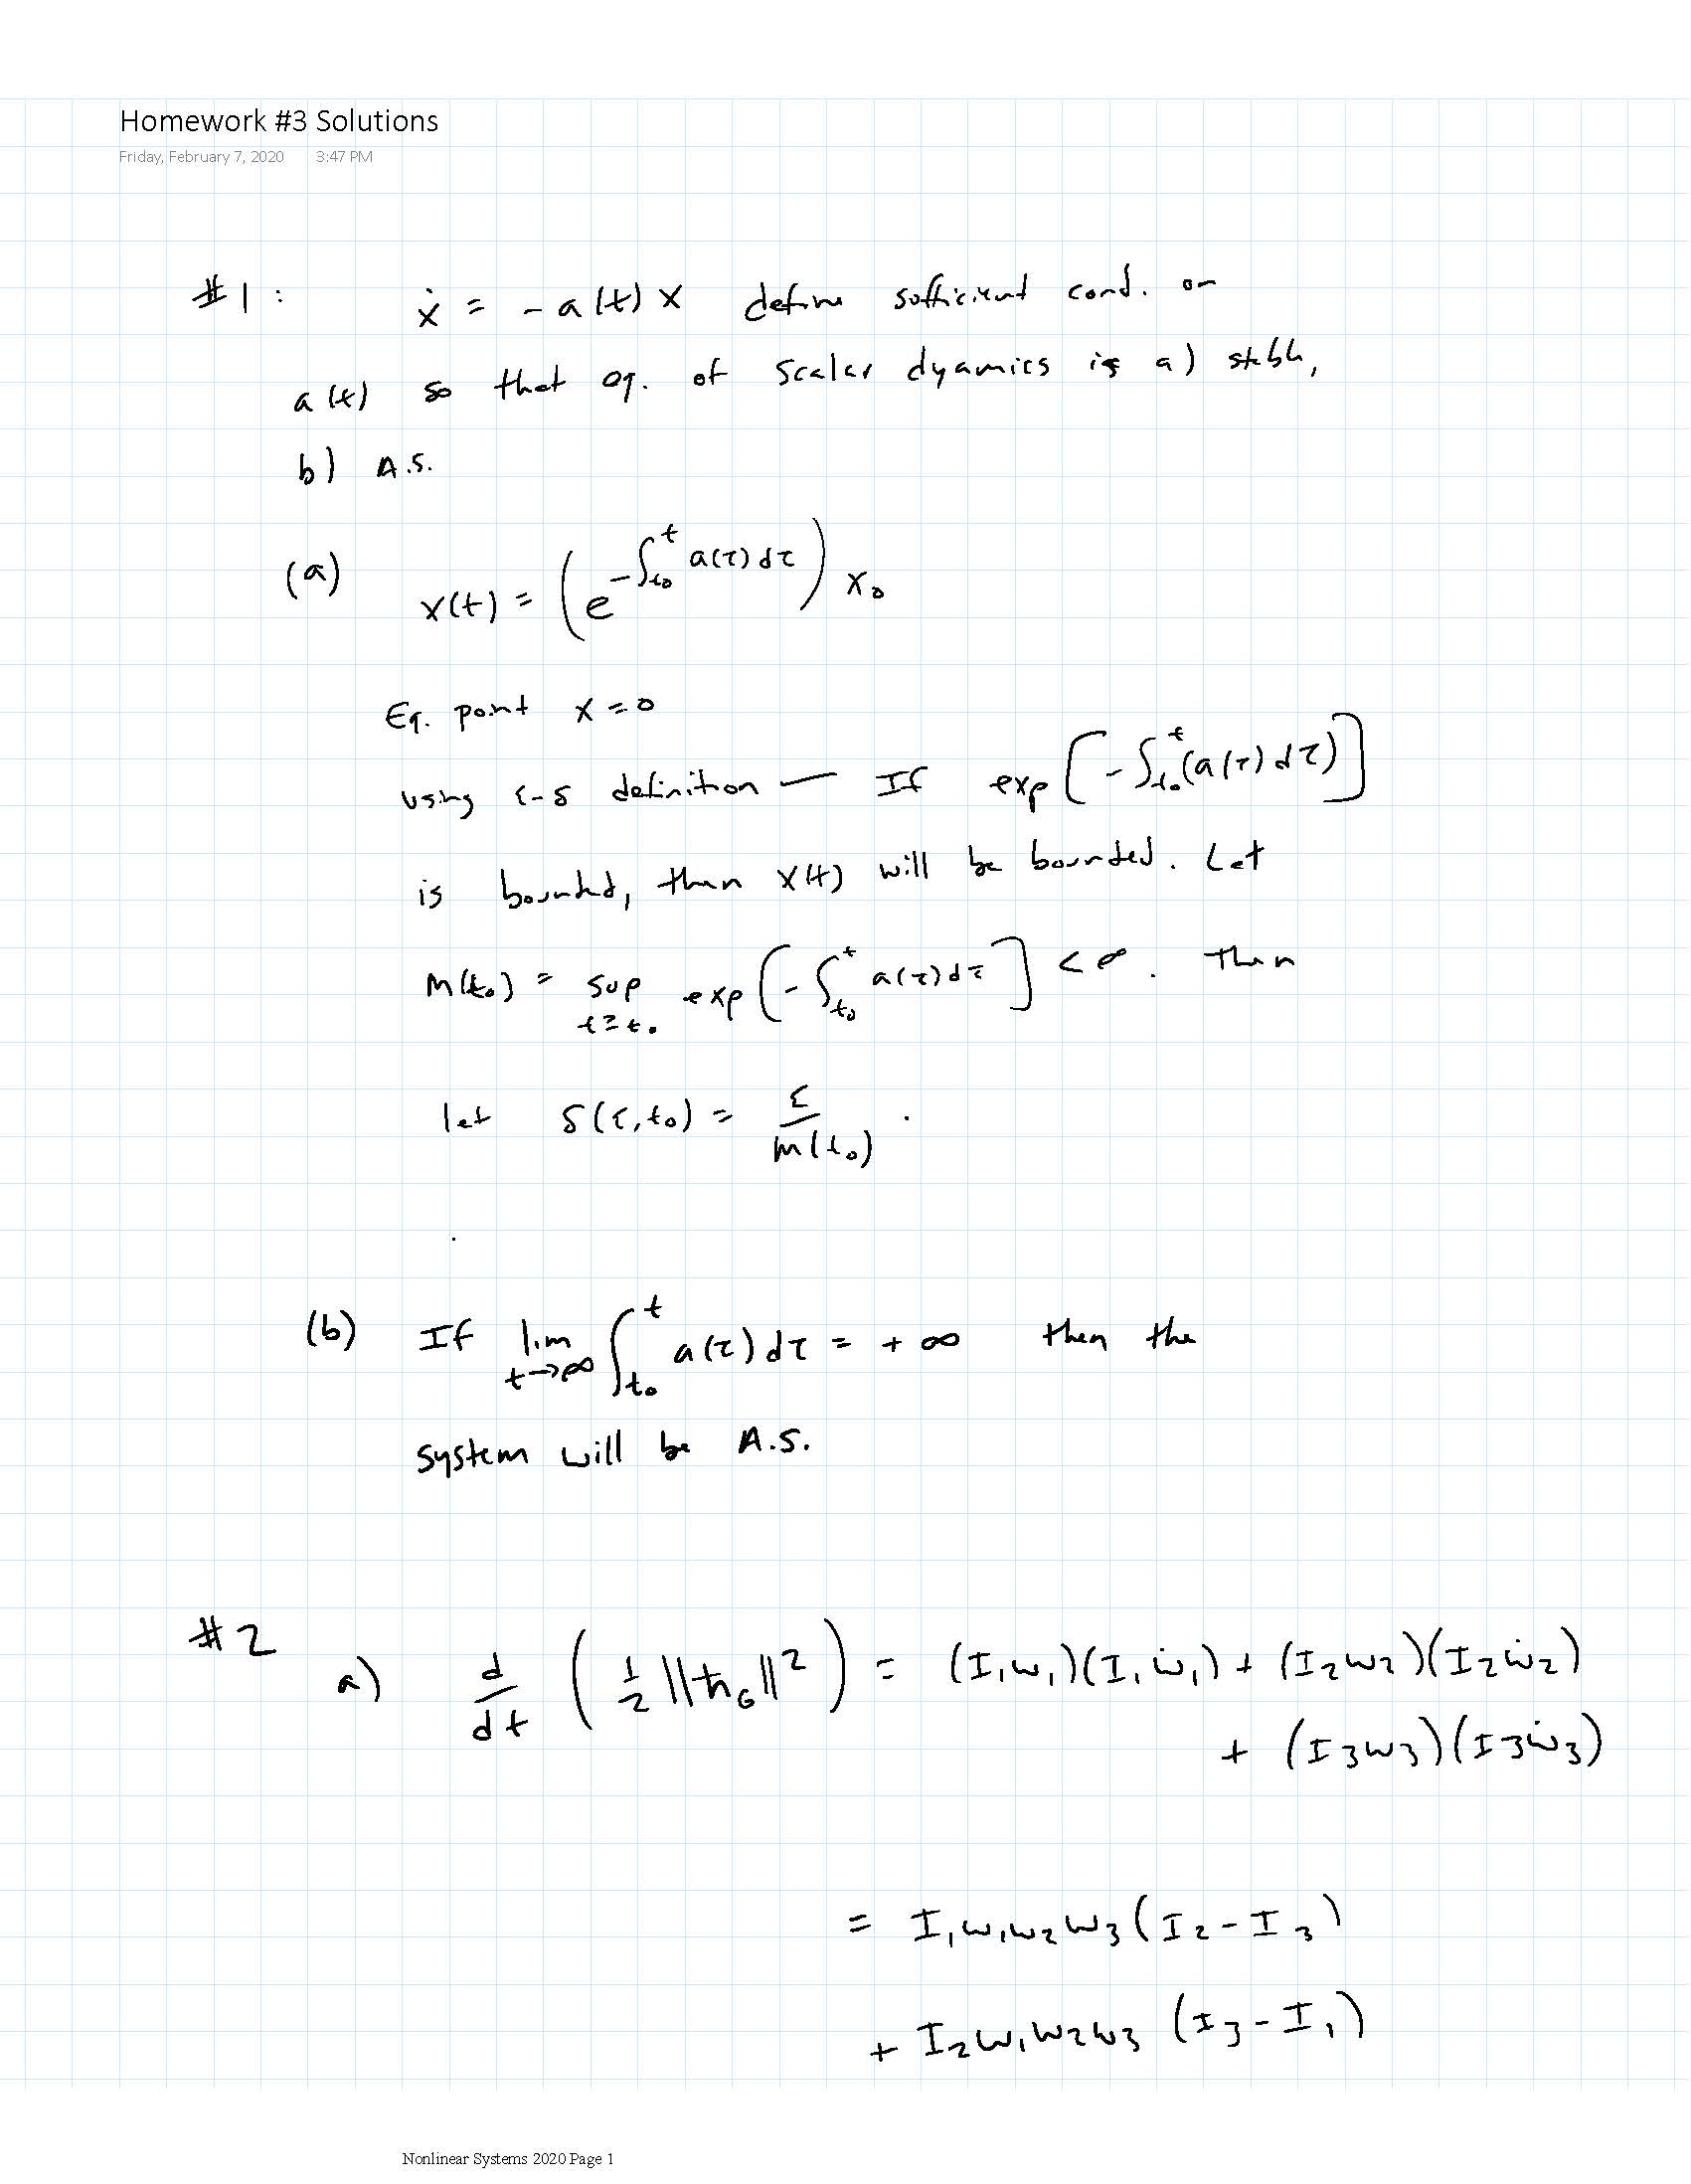 Homework #3 Solutions
Friday, February 7, 2020 3:47 PM
#1: ẋ = -a(t) x define sufficient cond. on
a(t) so that eq. of scalar dyamics is a) stable,
b) A.S.
(a) x(t) = (e^{-∫_{t₀}^{t} a(τ)dτ}) x₀
Eq. point x = 0
using ε-δ definition — If exp[-∫_{t₀}^{t}(a(τ)dτ)]
is bounded, then x(t) will be bounded. Let
m(t₀) = sup_{t≥t₀} exp[-∫_{t₀}^{t} a(τ)dτ] < ∞. Then
let δ(ε,t₀) = ε/m(t₀).
(b) If lim_{t→∞} ∫_{t₀}^{t} a(τ)dτ = +∞ then the
system will be A.S.
#2 a) d/dt (½‖ħ_G‖²) = (I₁ω₁)(I₁ω̇₁) + (I₂ω₂)(I₂ω̇₂)
+ (I₃ω₃)(I₃ω̇₃)
= I₁ω₁ω₂ω₃(I₂-I₃)
+ I₂ω₁ω₂ω₃(I₃-I₁)
Nonlinear Systems 2020 Page 1